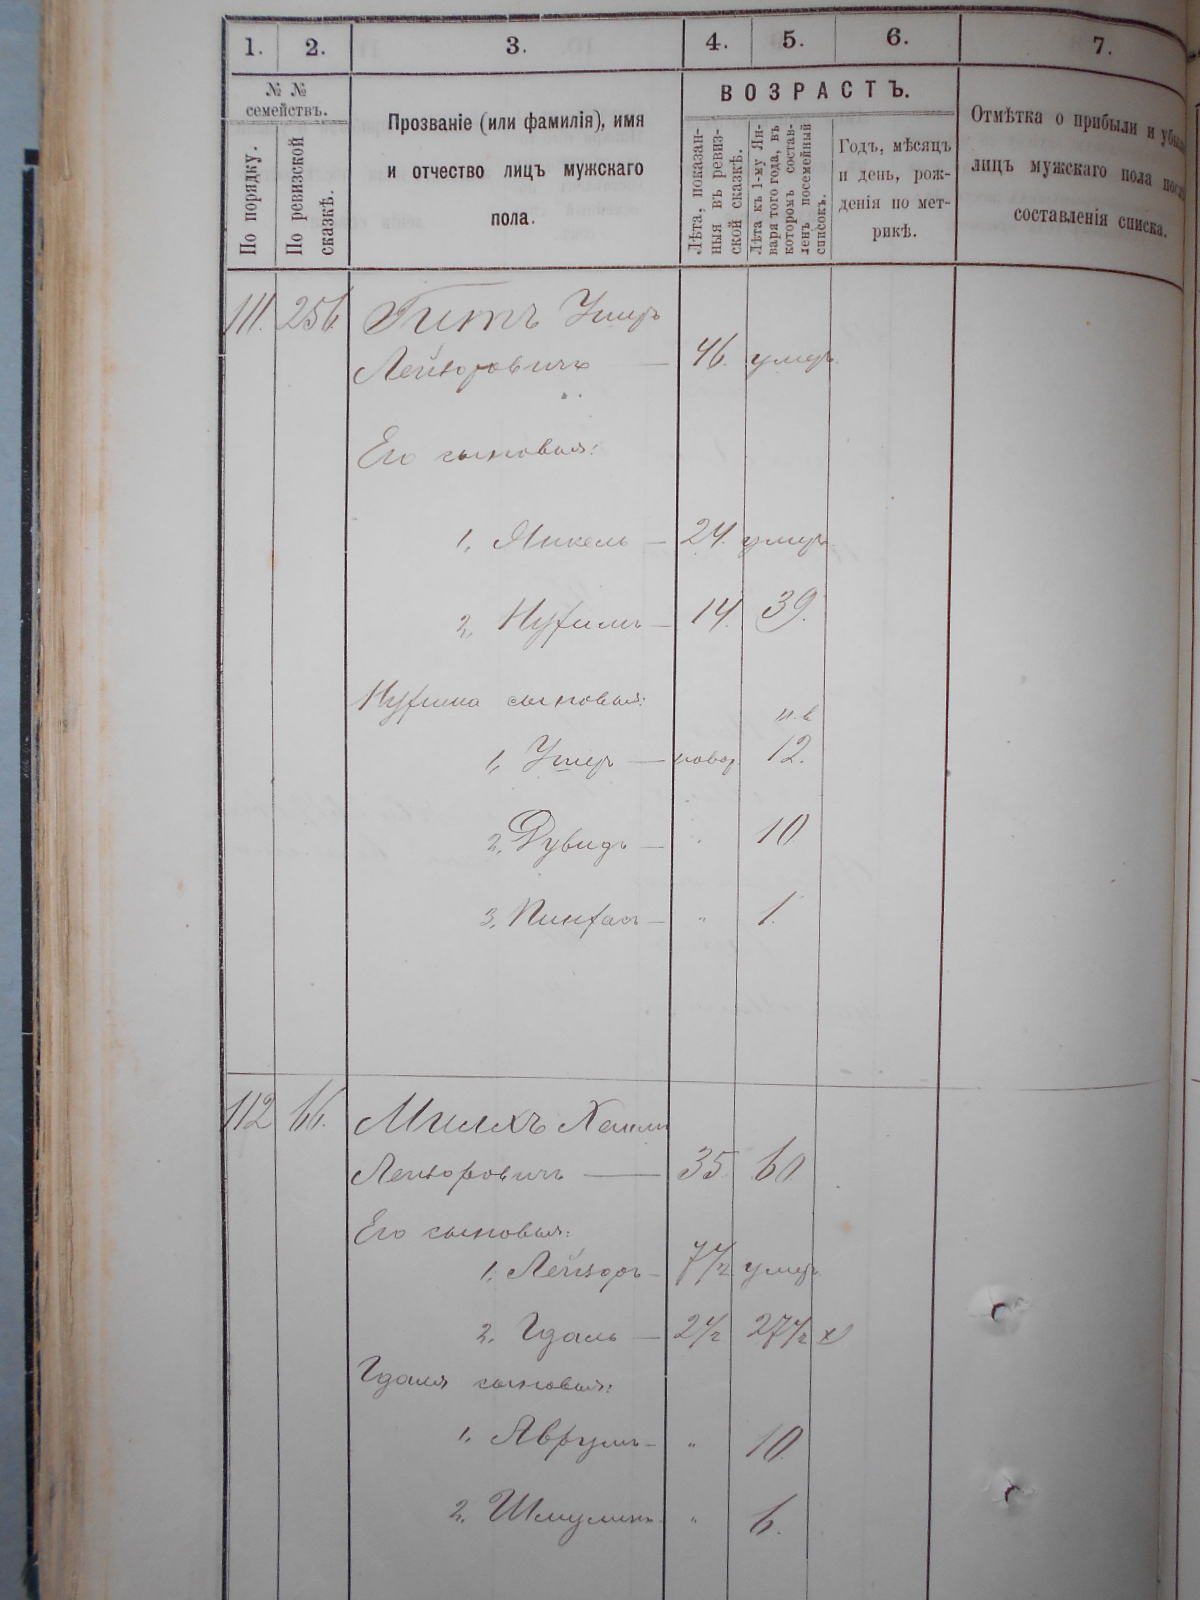 1. 2. 3. 4. 5. 6. 7.
№ №
семействъ.
По порядку.
По ревизской
сказкѣ.
Прозваніе (или фамилія), имя
и отчество лицъ мужскаго
пола.
ВОЗРАСТЪ.
Лѣта, показан-
ныя въ ревиз-
ской сказкѣ.
Лѣта къ 1-му Ян-
варя того года, въ
которомъ состав-
ленъ посемейный
списокъ.
Годъ, мѣсяцъ
и день, рож-
денія по мет-
рикѣ.
Отмѣтка о прибыли и убы
лицъ мужскаго пола посл
составленія списка.
111. 256. Гитъ Ушеръ
Лейзоровичъ — 46. умеръ
Его сыновья:
1, Янкель — 24. умеръ
2, Нухимъ — 14. 39.
Нухима сыновья:
н.в
1, Ушеръ — новор 12.
2, Дувидъ — " 10
3, Пинхасъ — " 1.
112 66. Милхъ
Лейзоровичъ — 35 60
Его сыновья:
1, Лейзоръ — 7 1/2 умеръ
2, Гдаль — 2 1/2 27 1/2 х
Гдаля сыновья:
1, Аврумъ — " 10
2, " 6.